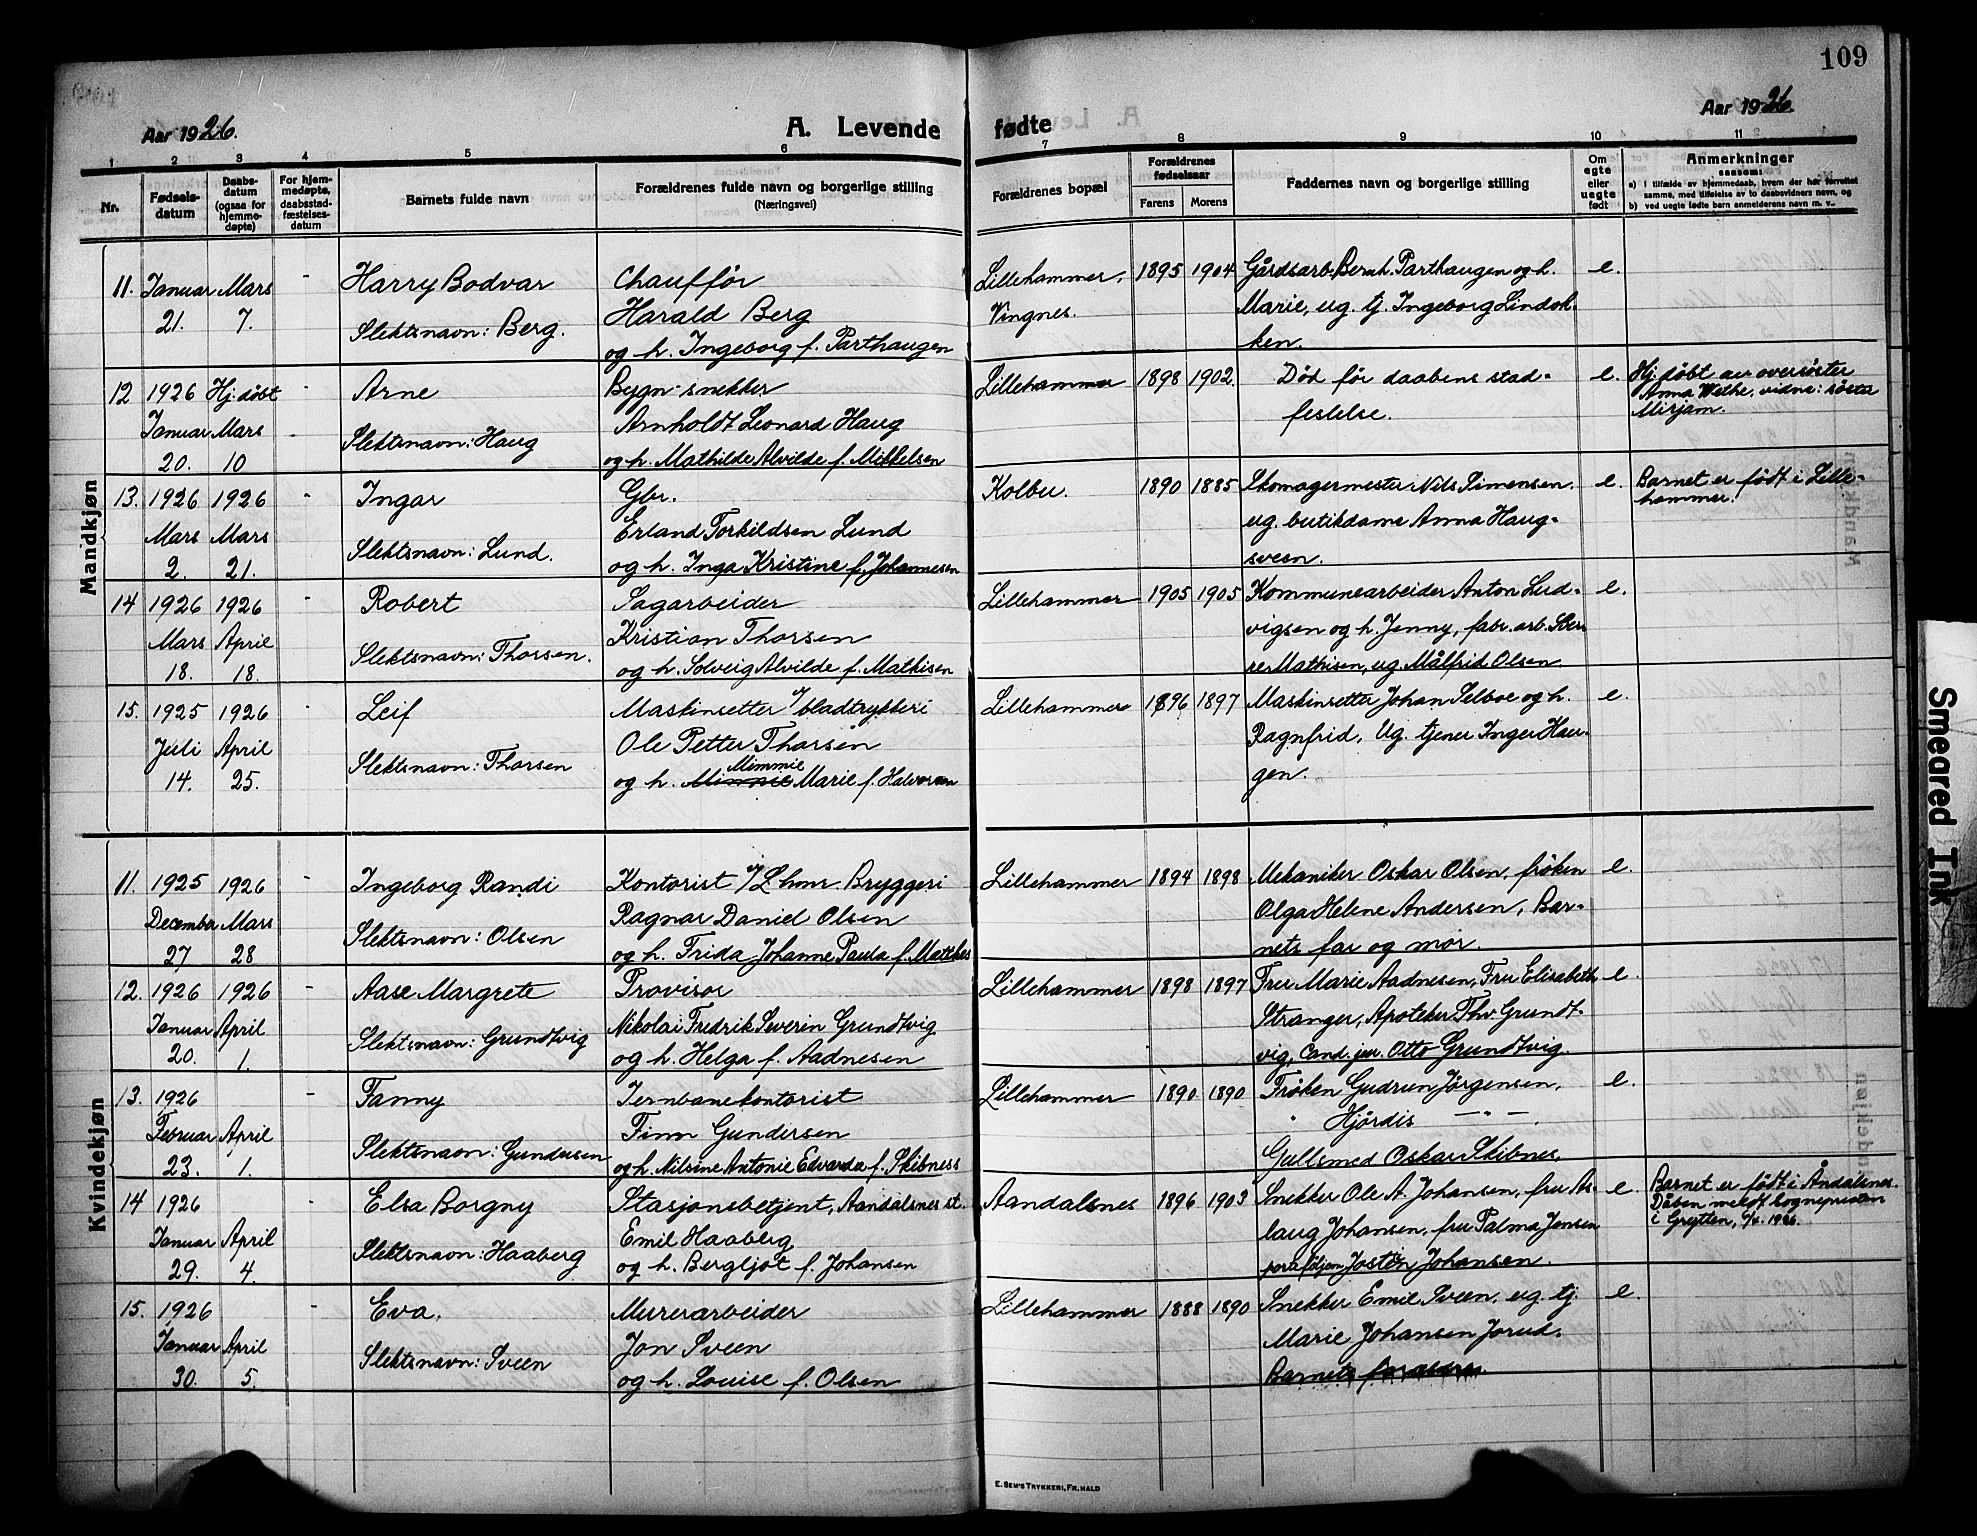 109
Aar 1926.
A. Levende fødte
Aar 1926.
1 2 3 4 5 6 7 8 9 10 11
Nr.
Fødsels-
datum
Daabs-
datum
(ogsaa for
hjemme-
døpte)
For hjem-
medøpte,
daabsstad-
fæstelses-
datum
Barnets fulde navn
Forældrenes fulde navn og borgerlige stilling
(Næringsvei)
Forældrenes bopæl
Forældrenes
fødselsaar
Farens Morens
Faddernes navn og borgerlige stilling
Om
egte
eller
uegte
født
Anmerkninger
saasom:
a) i tilfælde av hjemmedaab, hvem der har forrettet
samme, med tilføielse av to daabsvidners navn, og
b) ved uegte fødte barn anmelderens navn m. v.
Mandkjøn
11. Januar 21. Mars 7. -
Harry Bodvar
Slektsnavn: Berg.
Chauffør
Harald Berg
og h. Ingeborg f. Parthaugen
Lillehammer,
Vingnes.
1895 1904
Gårdsarb. Bernh. Parthaugen og h.
Marie, ug. tj. Ingeborg Lindok-
ken.
e.
12 1926 Januar 20. Hj. døbt Mars 10 -
Arne
Slektsnavn: Haug
Bygn.snekker
Arnholdt Leonard Haug
og h. Mathilde Alvilde f. Mikkelsen
Lillehammer
1898 1902.
Død før daabens stad-
festelse.
e.
Hj. døbt av oversøster
Anna Wethe, vidne: søster
Mirjam.
13. 1926 Mars 2. 1926 Mars 21. -
Ingar
Slektsnavn: Lund.
Gbr.
Erland Torkildsen Lund
og h. Inga Kristine f. Johannesen
Kolbu.
1890 1885
Skomagermester Nils Simensen.
ug. butikdame Anna Haug-
sveen.
e.
Barnet er født i Lille-
hammer!
14 1926 Mars 18. 1926 April 18. -
Robert
Slektsnavn: Thorsen.
Sagarbeider
Kristian Thorsen
og h. Solveig Alvilde f. Mathisen
Lillehammer
1905 1905
Kommunearbeider Anton Lud-
vigsen og h. Jenny, fabr. arb. Sver-
re Mathisen, ug. Målfrid Olsen
e.
15. 1925 Juli 14. 1926 April 25. -
Leif
Slektsnavn: Thorsen
Maskinsetter v/ bladtrykkeri
Ole Petter Thorsen
Mimmie
og h. Minnie Marie f. Halvorsen
Lillehammer
1896 1897
Maskinsetter Johan Selboe og h.
Ragnfrid, Ug. tjener Inger Hau-
gen.
e.
Kvindekjøn
11. 1925 December 27 1926 Mars 28 -
Ingeborg Randi
Slektsnavn: Olsen
Kontorist v/ L.hmr. Bryggeri
Ragnar Daniel Olsen
og h. Frida Johanne Paula f. Matthes
Lillehammer
1894 1898
Mekaniker Oskar Olsen, frøken
Olga Helene Andersen, Bar-
nets far og mor.
e.
12. 1926 Januar 20. 1926 April 1. -
Aase Margrete
Slektsnavn: Grundtvig
Provisor
Nikolai Fredrik Severin Grundtvig
og h. Helga f. Aadnesen
Lillehammer
1898 1897
Fru Marie Aadnesen, Fru Elisabeth
Stranger, Apoteker Thv. Grundt-
vig, Cand. jur. Otto Grundtvig.
e.
13. 1926 Februar 23. April 1. -
Fanny
Slektsnavn: Gundersen
Jernbanekontorist
Finn Gundersen
og h. Nilsine Antonie Edvarda f. Skibness
Lillehammer
1890 1890
Frøken Gudrun Jørgensen,
" Hjørdis — " —
Gullsmed Oskar Skibnes
e.
14 1926 Januar 29. April 4. -
Elsa Borgny
Slektsnavn: Haaberg
Stasjonsbetjent, Aandalsnes st.
Emil Haaberg
og h. Bergljot f. Johansen
Aandalsnes
1896 1903
Snekker Ole A. Johansen, fru As-
laug Johansen, fru Palma Jensen
Jostein Johansen.
e.
Barnet er født i Åndalsnes.
Dåben meldt sognepresten
i Grytten, 1926.
15. 1926 Januar 30. April 5. -
Eva.
Slektsnavn: Sveen
Murerarbeider
Jon Sveen
og h. Louise f. Olsen
Lillehammer
1888 1890
Snekker Emil Sveen, ug. tj.
Marie Johansen Jorud.
Barnets foreldre.
e.
E. SEM'S TRYKKERI, FR. HALD
Smeared Ink